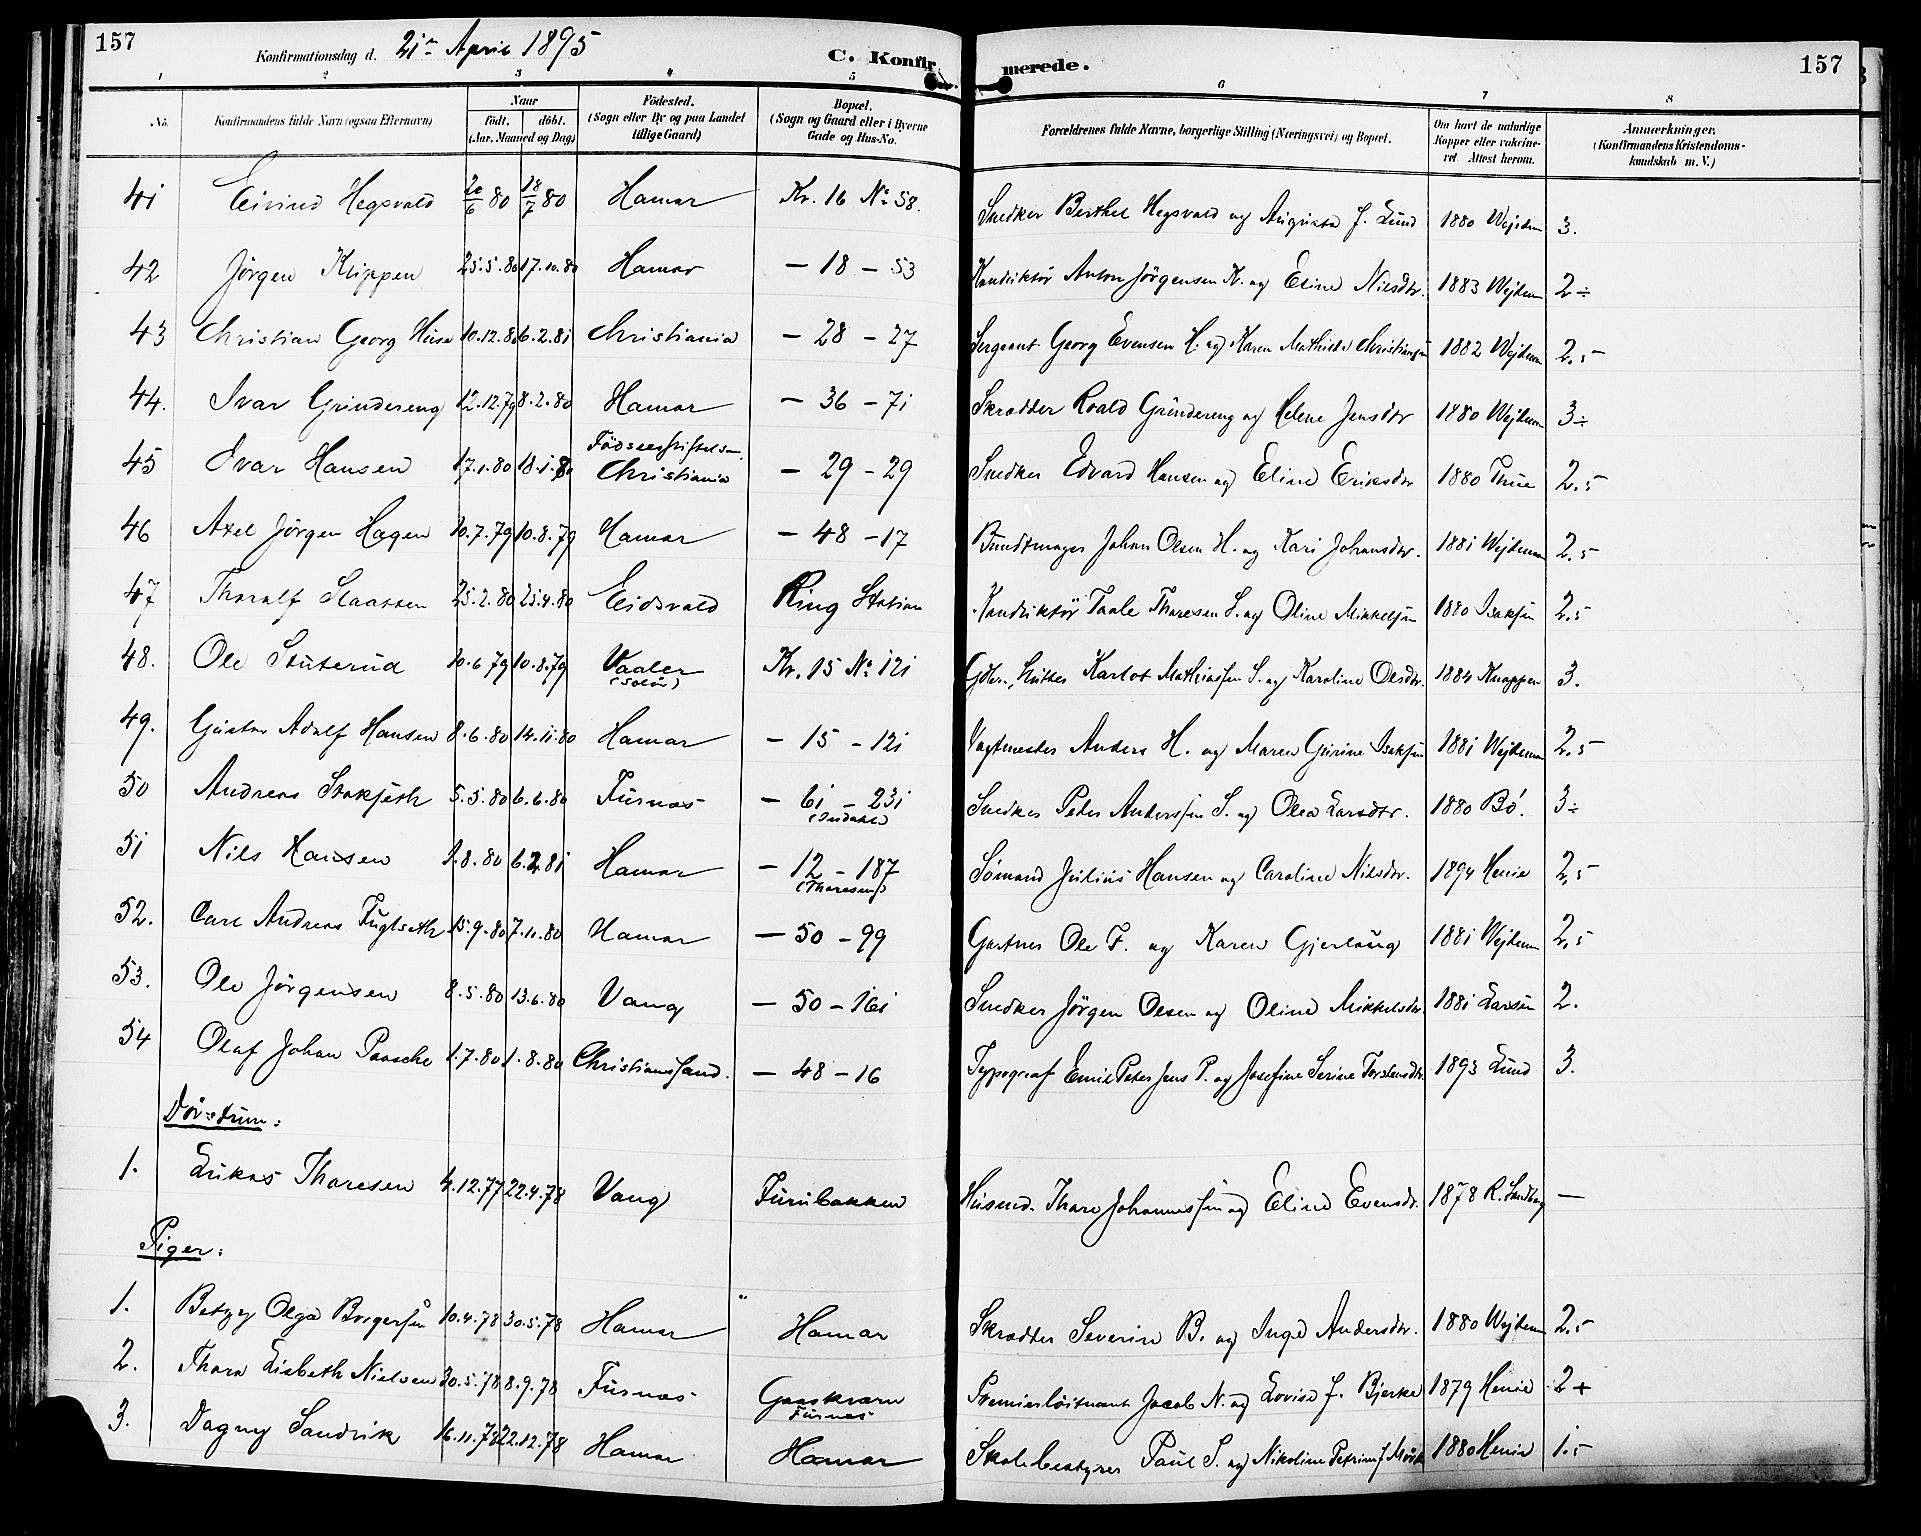 157 Konfirmationsdag d. 21de April 1895 C. Konfirmerede. 157
1 2 3 4 5 6 7 8
No. Konfirmandens fulde Navn (ogsaa Efternavn) Naar födt. döbt. (Aar, Maaned og Dag) Födested. (Sogn eller By og paa Landet tillige Gaard) Bopæl. (Sogn og Gaard eller i Byerne Gade og Hus-No. Forældrenes fulde Navne, borgerlige Stilling (Næringsvei) og Bopæl. Om havt de naturlige Kopper eller vakcineret. Attest herom. Anmærkninger. (Konfirmandens Kristendomskundskab m. V.)
41 Eivind Hegsvold 20/6 80 18/7 80 Hamar Kv. 16 No 58. Snedker Berthel Hegsvold og Augusta f. Lund 1880 Wejdem 3.
42 Jörgen Klippen 25.5.80 17.10.80 Hamar – 18 – 53 Konduktör Anton Jörgensen K. og Eline Nilsdtr. 1883 Wejdem 2÷
43 Christian Georg Huse 10.12.80 6.2.81 Christiania – 28 – 27 Sergeant Georg Evensen H. og Karen Mathilde Christiansen 1882 Wejdem 2,5
44. Ivar Grindereng 12.12.79 8.2.80 Hamar – 36 – 71 Skrædder Roald Grindereng og Helene Jensdtr 1880 Wejdem 3÷
45 Ivar Hansen 17.1.80 18.1.80 Födselsstiftelsen, Christiania – 29 – 29 Snedker Edvard Hansen og Eline Eriksdtr 1880 Thue 2,5
46 Axel Jörgen Hagen 10.7.79 10.8.79 Hamar – 48 – 17 Bundtmager Johan Olsen H. og Kari Johansdtr. 1881 Wejdem 2,5
47 Tharalf Slaatten 25.2.80 25.4.80 Eidsvold Ring Station Konduktör Taale Tharesen S. og Oline Mikkelsen 1880 Isaksen 2,5
48. Ole Stuterud 10.6.79 10.8.79 Vaaler (Solör) Kv. 15 No 121 Karlot Mathiassen S. og Karoline Olsdtr. 1884 Knappen 3.
49. Gustav Adolf Hansen 8.6.80 14.11.80 Hamar – 15 – 121 Vagtmester Anders H. og Maren Gurine Isaksen 1881 Wejdem 2,5
50 Andreas Stakseth 5.5.80 6.6.80 Furnæs – 61 – 231 Snedker Peter Anderssen S. og Olea Larsdtr. 1880 Bö. 3÷
51 Nils Hansen 9.8.80 6.2.81 Hamar – 12 – 187 (Tharesen) Sömand Julius Hansen og Caroline Nilsdtr. 1894 Henie 2,5
52. Carl Andreas Fuglseth 15.9.80 7.11.80 Hamar – 50 – 99 Gartner Ole F. og Karen Gjerlaug 1881 Wejdem 2,5
53. Ole Jörgensen 8.5.80 13.6.80 Vang – 50 – 161 Snedker Jörgen Olsen og Oline Mikkelsdtr. 1881 Larsen 2.
54 Olaf Johan Paasche 1.7.80 1.8.80 Christianssand. – 48 – 16 Typograf Emil Peter Jens P. og Josefine Serine Torstensdtr. 1893 Lund 3.
Dövstum:
1. Lukas Tharesen 4.12.77 22.4.78 Vang Furubakken Husmd. Thore Johannessen og Eline Evensdtr. 1878 R. Sandberg –
Piger:
1. Betzy Olga Borgersen 10.4.78 30.5.78 Hamar Hamar Skrædder Severin B. og Inge Andersdtr. 1880 Wejdem 2,5
2. Thora Lisbeth Nielsen 30.5.78 8.9.78 Furnæs Gaaskværn Furnæs Premierlöitnant Jacob N. og Lovise f. Bjerke 1879 Henie 2+
3. Dagny Sandvik 16.11.78 22.12.78 Hamar Hamar Skolebestyrer Paul S. og Nikoline Petrine f. Mörk 1880 Henie 1.5